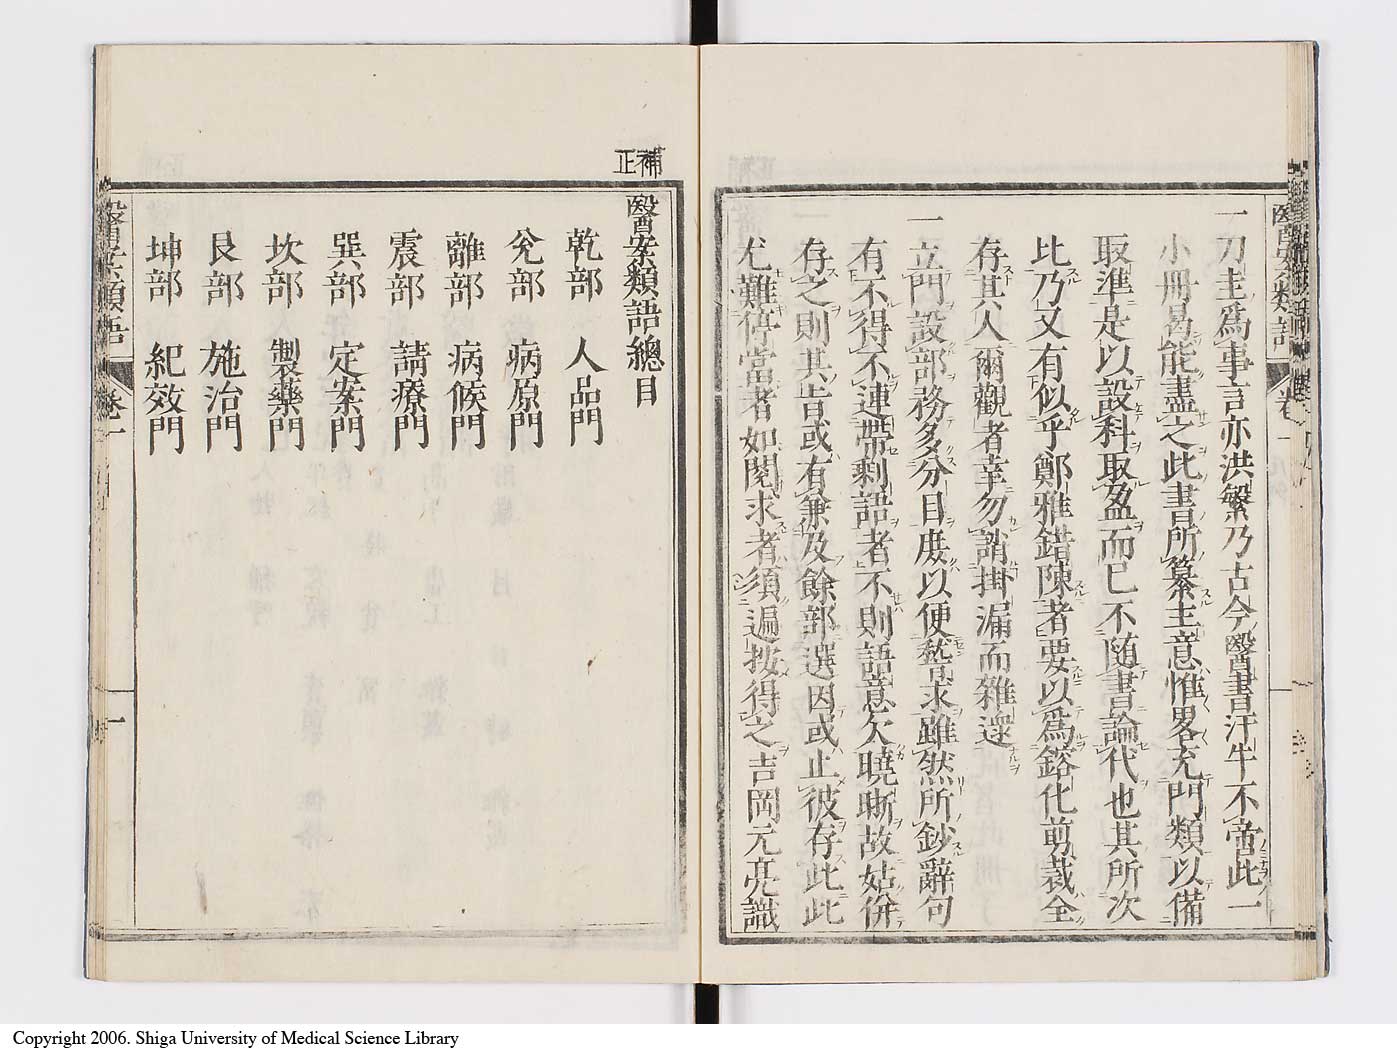 一刀圭爲事言亦洪繁乃古今醫書汗牛不啻此一
小冊曷能盡之此書所纂主意惟畧充門類以備
取準是以設科取盈而已不随書論代也其所次
比乃又有似乎鄭雅錯陳者要以爲鎔化剪裁全
存其人爾觀者幸勿誚掛漏而雜還
一立門設部務多分目庶以便嵇求雖然所鈔辭句
有不得不連帶剩語者不則語意欠曉晰故姑併
存之則其旨或有兼及餘部選因或止彼存此此
尤難停當者如閱求者須遍按得之吉岡元亮識
醫案類語 卷一
補正
醫案類語總目
乾部 人品門
兌部 病原門
離部 病候門
震部 請療門
巽部 定案門
坎部 製藥門
艮部 施治門
坤部 紀效門
醫案類語 卷一 目 一
Copyright 2006. Shiga University of Medical Science Library